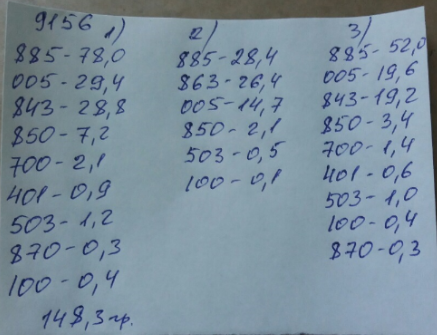 9156
1)
885-78,0
005-29,4
843-28,8
850-7,2
700-2,1
401-0,9
503-1,2
870-0,3
100-0,4
148,3 гр.
2)
885-28,4
863-26,4
005-14,7
850-2,1
503-0,5
100-0,1
3)
885-52,0
005-19,6
843-19,2
850-3,4
700-1,4
401-0,6
503-1,0
100-0,4
870-0,3